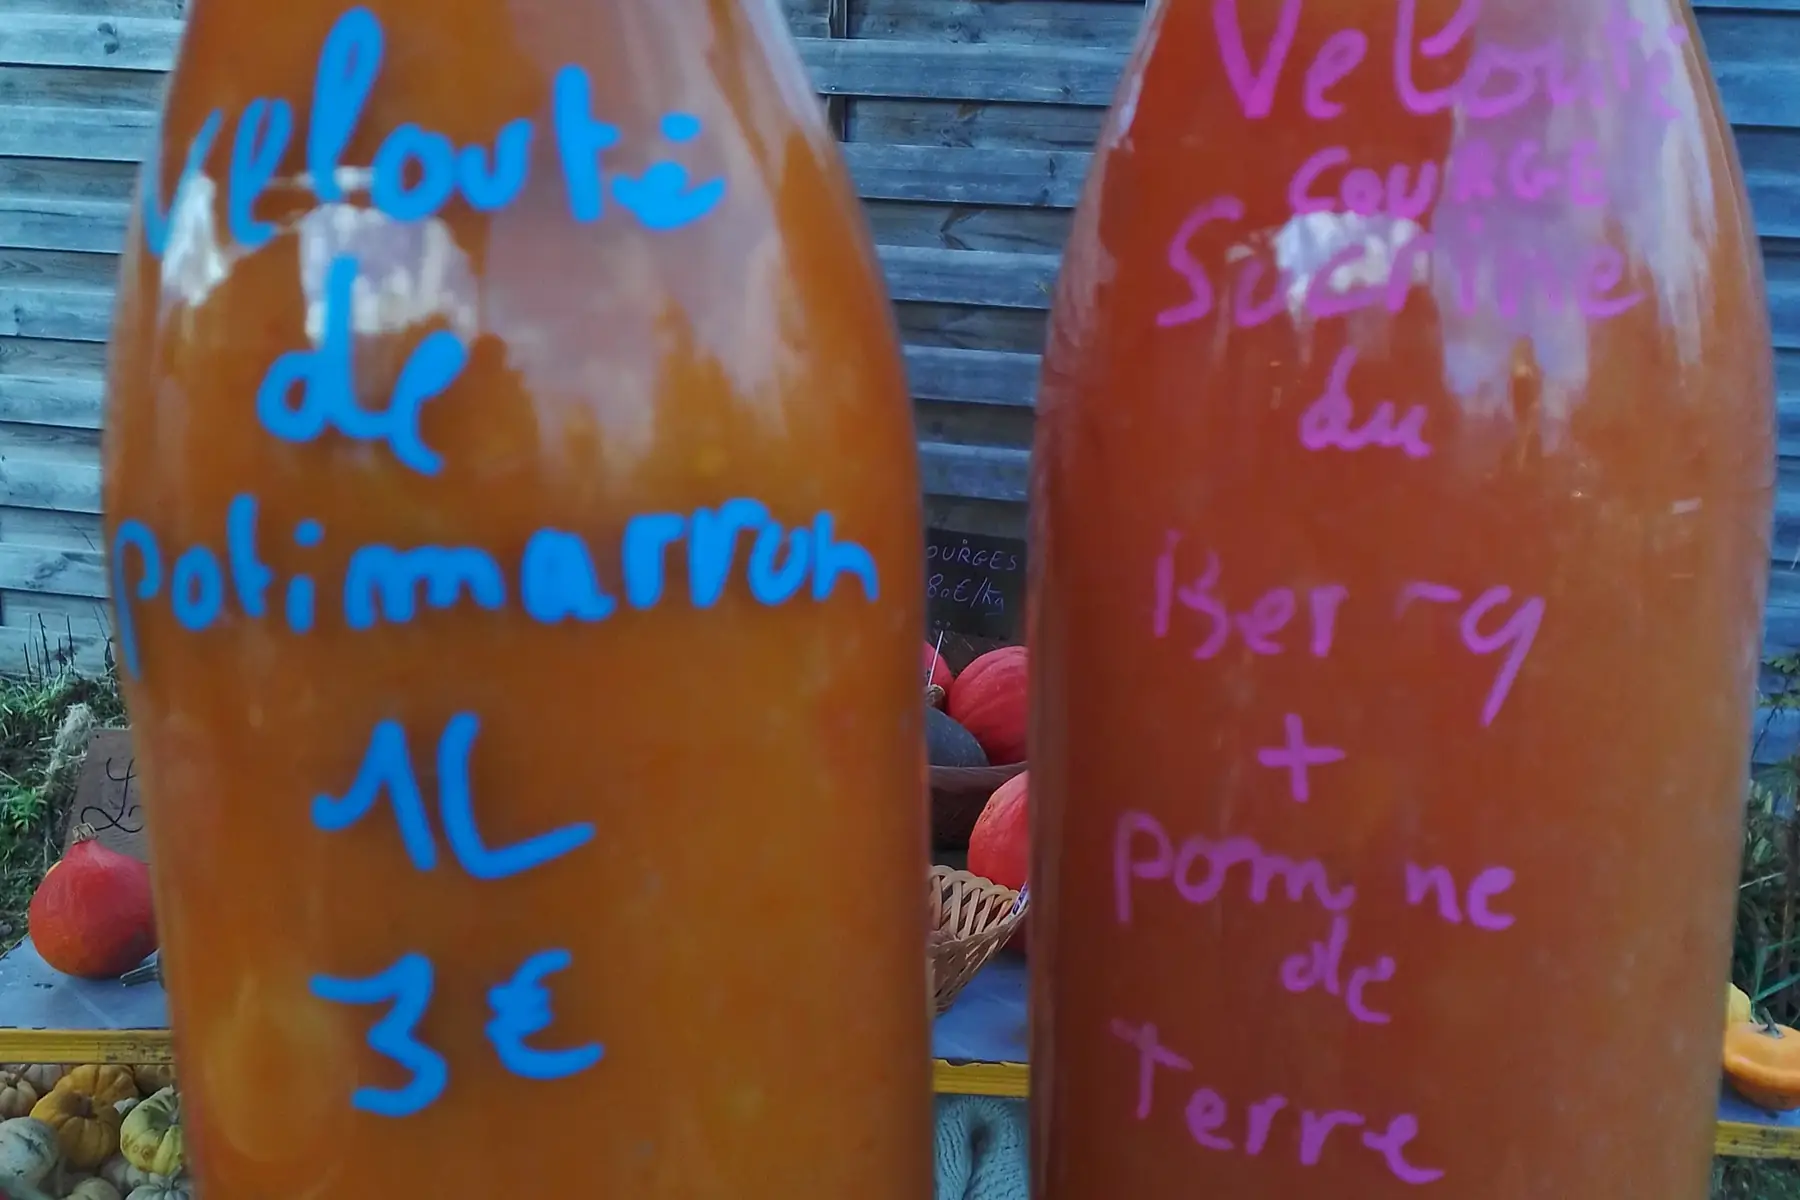 velouté
de
potimarron
1L
3€
Velouté
COURGE
Sucrine
du
Berry
+
pomme
de
Terre
OURGES
80€/Kg